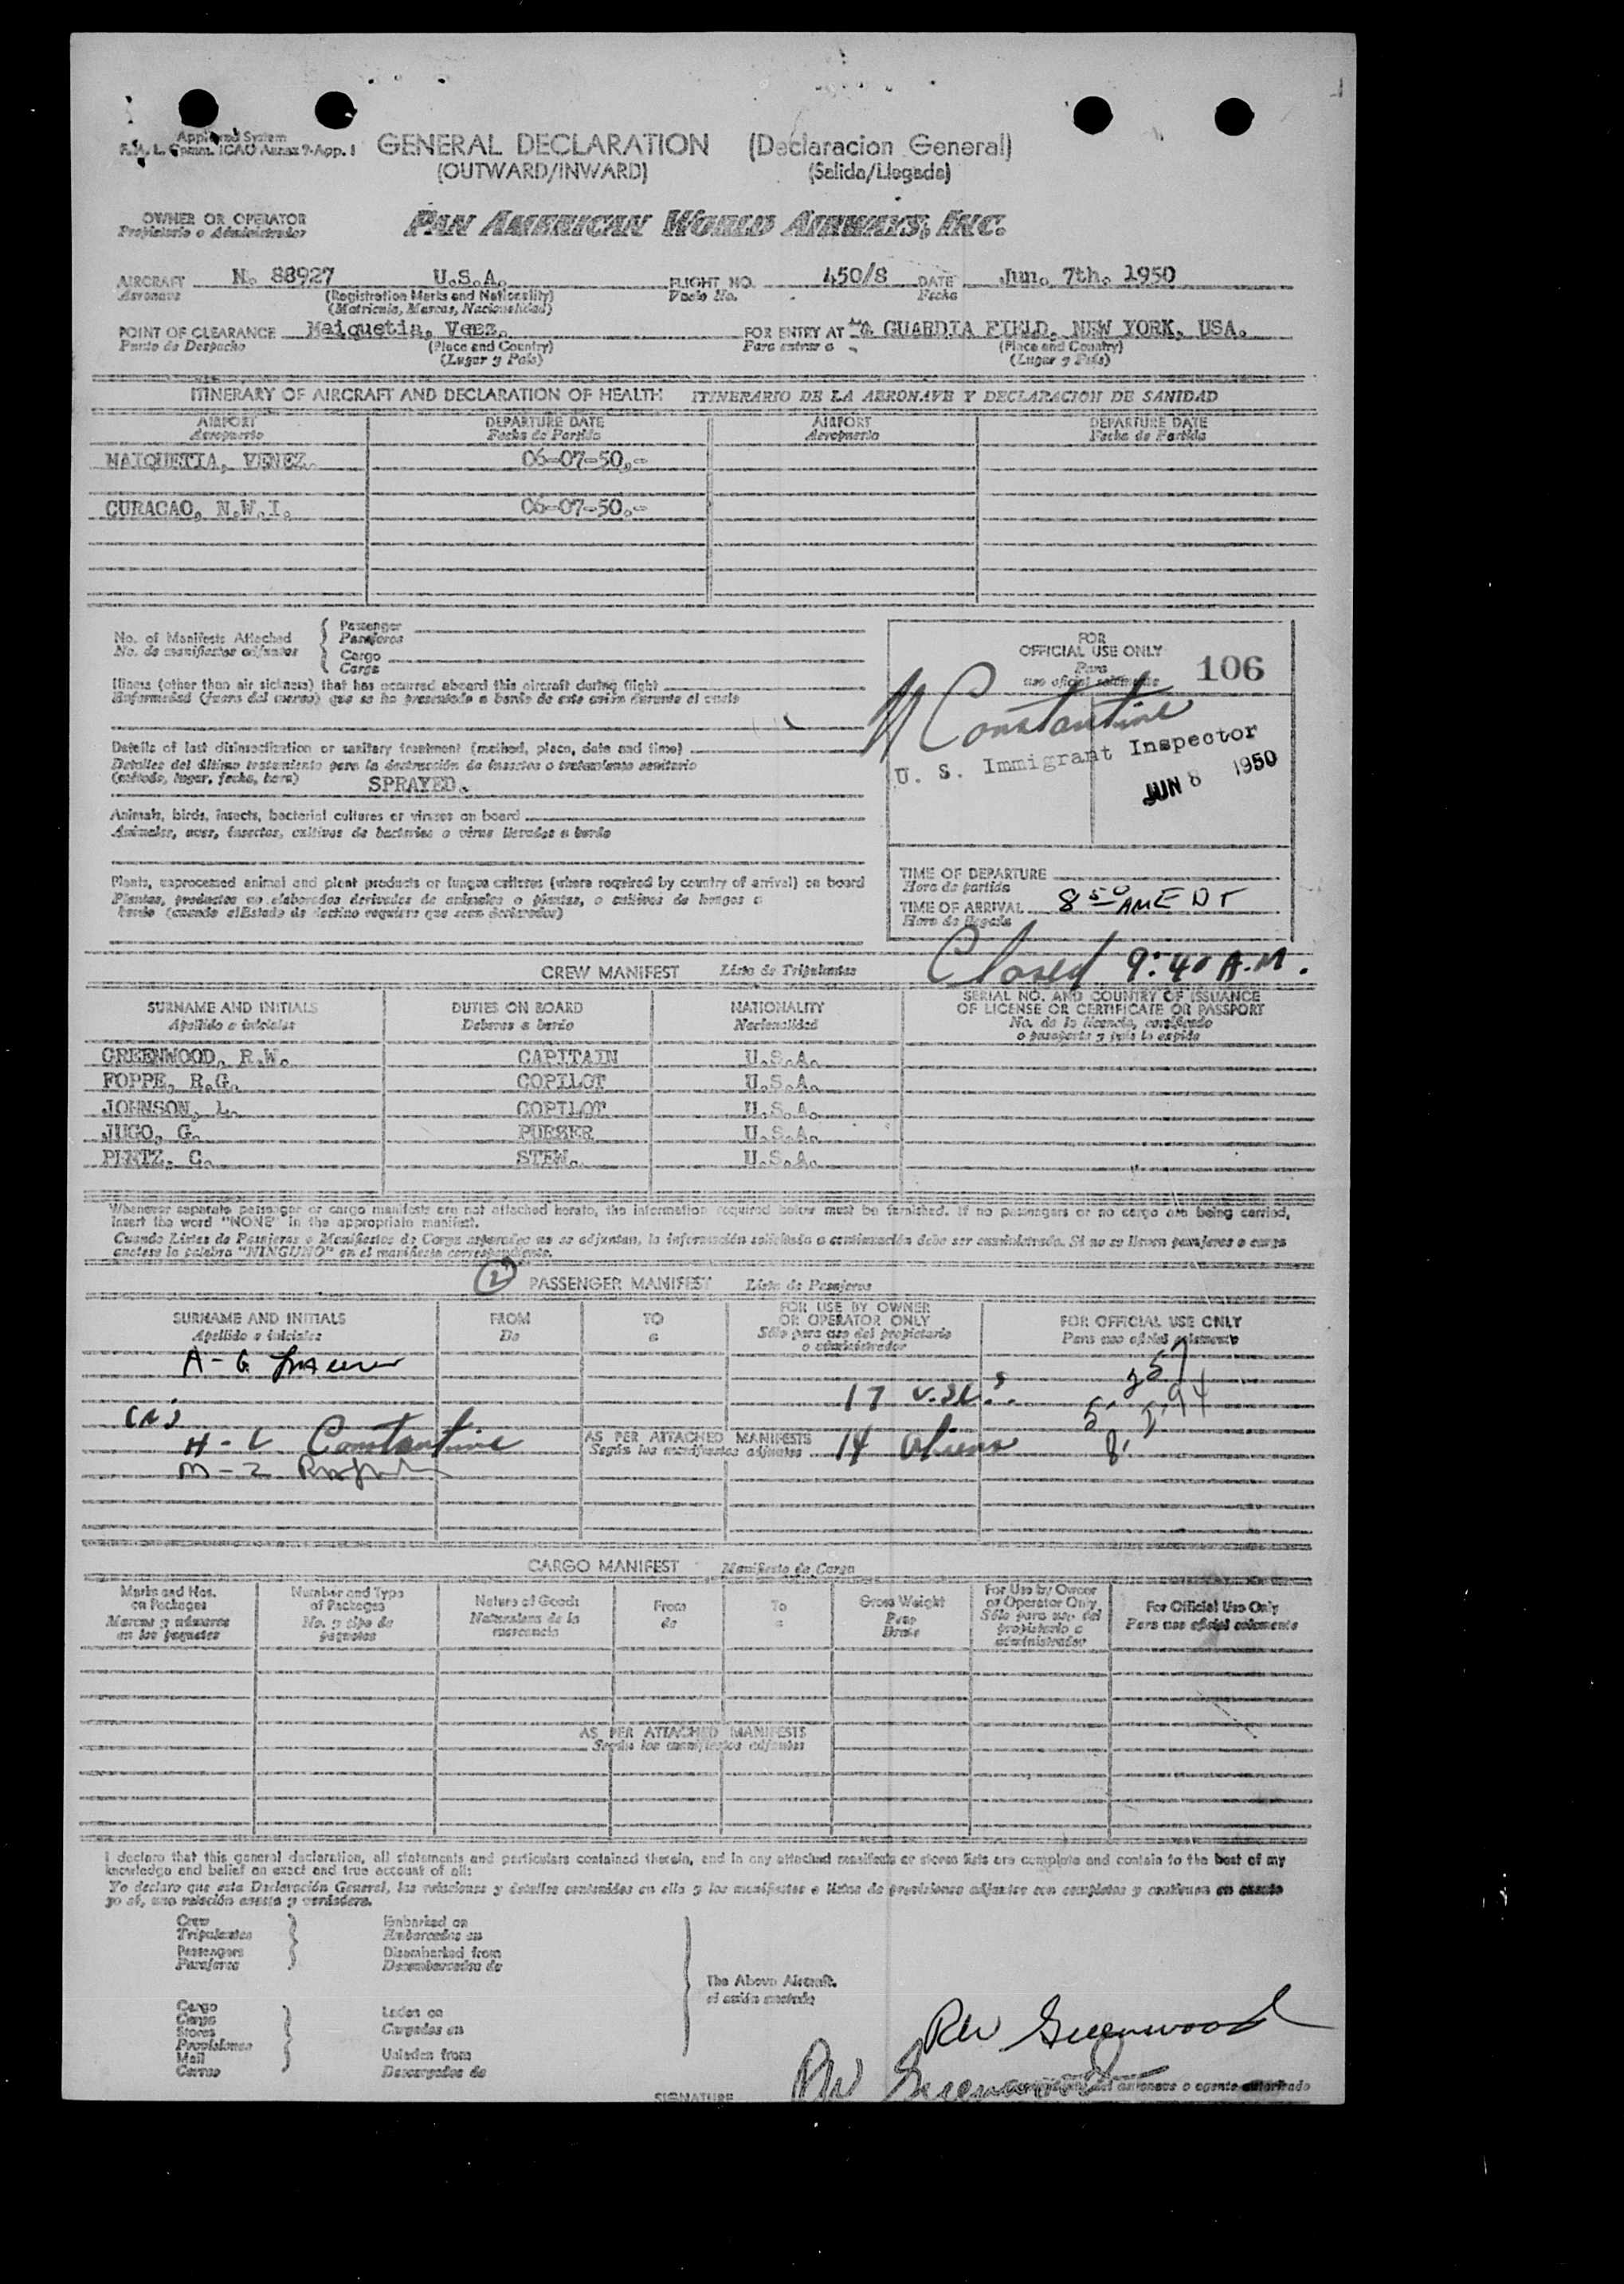 Approved System
F.A.L. Comm. ICAO Annex 9-App. 1
GENERAL DECLARATION (Declaracion General)
(OUTWARD/INWARD) (Salida/Llegada)
OWNER OR OPERATOR
Propietario o Administrador
PAN AMERICAN WORLD AIRWAYS, INC.
AIRCRAFT N. 88927 U.S.A. FLIGHT NO. 450/8 DATE Jun. 7th. 1950
Aeronave (Registration Marks and Nationality) Vuelo No. Fecha
(Matricula, Marcas, Nacionalidad)
POINT OF CLEARANCE Maiquetia, Venz. FOR ENTRY AT La GUARDIA FIELD, NEW YORK, USA.
Punto de Despacho (Place and Country) Para entrar a (Place and Country)
(Lugar y País) (Lugar y País)
ITINERARY OF AIRCRAFT AND DECLARATION OF HEALTH ITINERARIO DE LA AERONAVE Y DECLARACION DE SANIDAD
AIRPORT DEPARTURE DATE AIRPORT DEPARTURE DATE
Aeropuerto Fecha de Partida Aeropuerto Fecha de Partida
MAIQUETIA, VENEZ. 06-07-50.-
CURACAO, N.W.I. 06-07-50.-
No. of Manifests Attached Passenger
No. de manifiestos adjuntos Pasajeros
Cargo
Carga
FOR
OFFICIAL USE ONLY
Para
uso oficial solamente
106
Illness (other than air sickness) that has occurred aboard this aircraft during flight
Enfermedad (fuera del mareo) que se ha presentado a bordo de este avión durante el vuelo
H Constantine
U. S. Immigrant Inspector
JUN 8 1950
Details of last disinsectization or sanitary treatment (method, place, date and time)
Detalles del último tratamiento para la destrucción de insectos o tratamiento sanitario
(método, lugar, fecha, hora) SPRAYED.
Animals, birds, insects, bacterial cultures or viruses on board
Animales, aves, insectos, cultivos de bacterias o virus llevados a bordo
Plants, unprocessed animal and plant products or fungus cultures (where required by country of arrival) on board
Plantas, productos no elaborados derivados de animales o plantas, o cultivos de hongos a
bordo (cuando el Estado de destino requiere que sean declarados)
TIME OF DEPARTURE
Hora de partida
TIME OF ARRIVAL 8 50 AM EDT
Hora de llegada
Closed 9:40 A.M.
CREW MANIFEST Lista de Tripulantes
SURNAME AND INITIALS DUTIES ON BOARD NATIONALITY SERIAL NO. AND COUNTRY OF ISSUANCE
OF LICENSE OR CERTIFICATE OR PASSPORT
Apellido e iniciales Deberes a bordo Nacionalidad No. de la licencia, certificado
o pasaporte y país lo expide
GREENWOOD, R.W. CAPITAIN U.S.A.
FOPPE, R.G. COPILOT U.S.A.
JOHNSON, L. COPILOT U.S.A.
JUGO, G. PURSER U.S.A.
PINTZ, C. STEW. U.S.A.
Whenever separate passenger or cargo manifests are not attached hereto, the information required below must be furnished. If no passengers or no cargo are being carried,
insert the word "NONE" in the appropriate manifest.
Cuando Listas de Pasajeros o Manifiestos de Carga separados no se adjuntan, la información solicitada a continuación debe ser suministrada. Si no se llevan pasajeros o carga
anótese la palabra "NINGUNO" en el manifiesto correspondiente.
2 PASSENGER MANIFEST Lista de Pasajeros
SURNAME AND INITIALS FROM TO FOR USE BY OWNER
OR OPERATOR ONLY FOR OFFICIAL USE ONLY
Apellido e iniciales De a Sólo para uso del propietario
o administrador Para uso oficial solamente
A-G
17 U.SC.'s
H-L Constantine AS PER ATTACHED MANIFESTS 14 aliens
Según los manifiestos adjuntos
M-Z
CARGO MANIFEST Manifiesto de Carga
Marks and Nos.
on Packages
Marcas y números
en los paquetes
Number and Type
of Packages
No. y tipo de
paquetes
Nature of Goods
Naturaleza de la
mercancia
From
de
To
a
Gross Weight
Peso
Bruto
For Use by Owner
or Operator Only
Sólo para uso del
propietario o
administrador
For Official Use Only
Para uso oficial solamente
AS PER ATTACHED MANIFESTS
Según los manifiestos adjuntos
I declare that this general declaration, all statements and particulars contained therein, and in any attached manifests or stores lists are complete and contain to the best of my
knowledge and belief an exact and true account of all:
Yo declaro que esta Declaración General, las relaciones y detalles contenidos en ella y los manifiestos o listas de provisiones adjuntos son completos y contienen en cuanto
yo sé, una relación exacta y verdadera.
Crew
Tripulantes
Passengers
Pasajeros
Embarked on
Embarcados en
Disembarked from
Desembarcados de
The Above Aircraft.
el avión anotado
Cargo
Carga
Stores
Provisiones
Mail
Correo
Laden on
Cargados en
Unladen from
Descargados de
RW Greenwood
RW Greenwood
SIGNATURE aeronave o agente autorizado